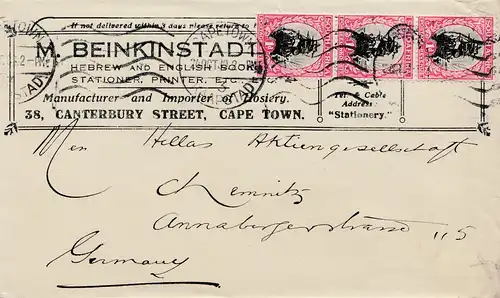 If not delivered within 8 days please return to
M. BEINKINSTADT
HEBREW AND ENGLISH BOOK
STATIONER, PRINTER, ETC. ETC.
Manufacturer and Importer of Hosiery.
38, CANTERBURY STREET, CAPE TOWN.
Tel. & Cable
Address:
"Stationery."
CAPETOWN
KAAPSTAD
Hellas Aktiengesellschaft
Chemnitz
Annabergerstrasse 115
Germany